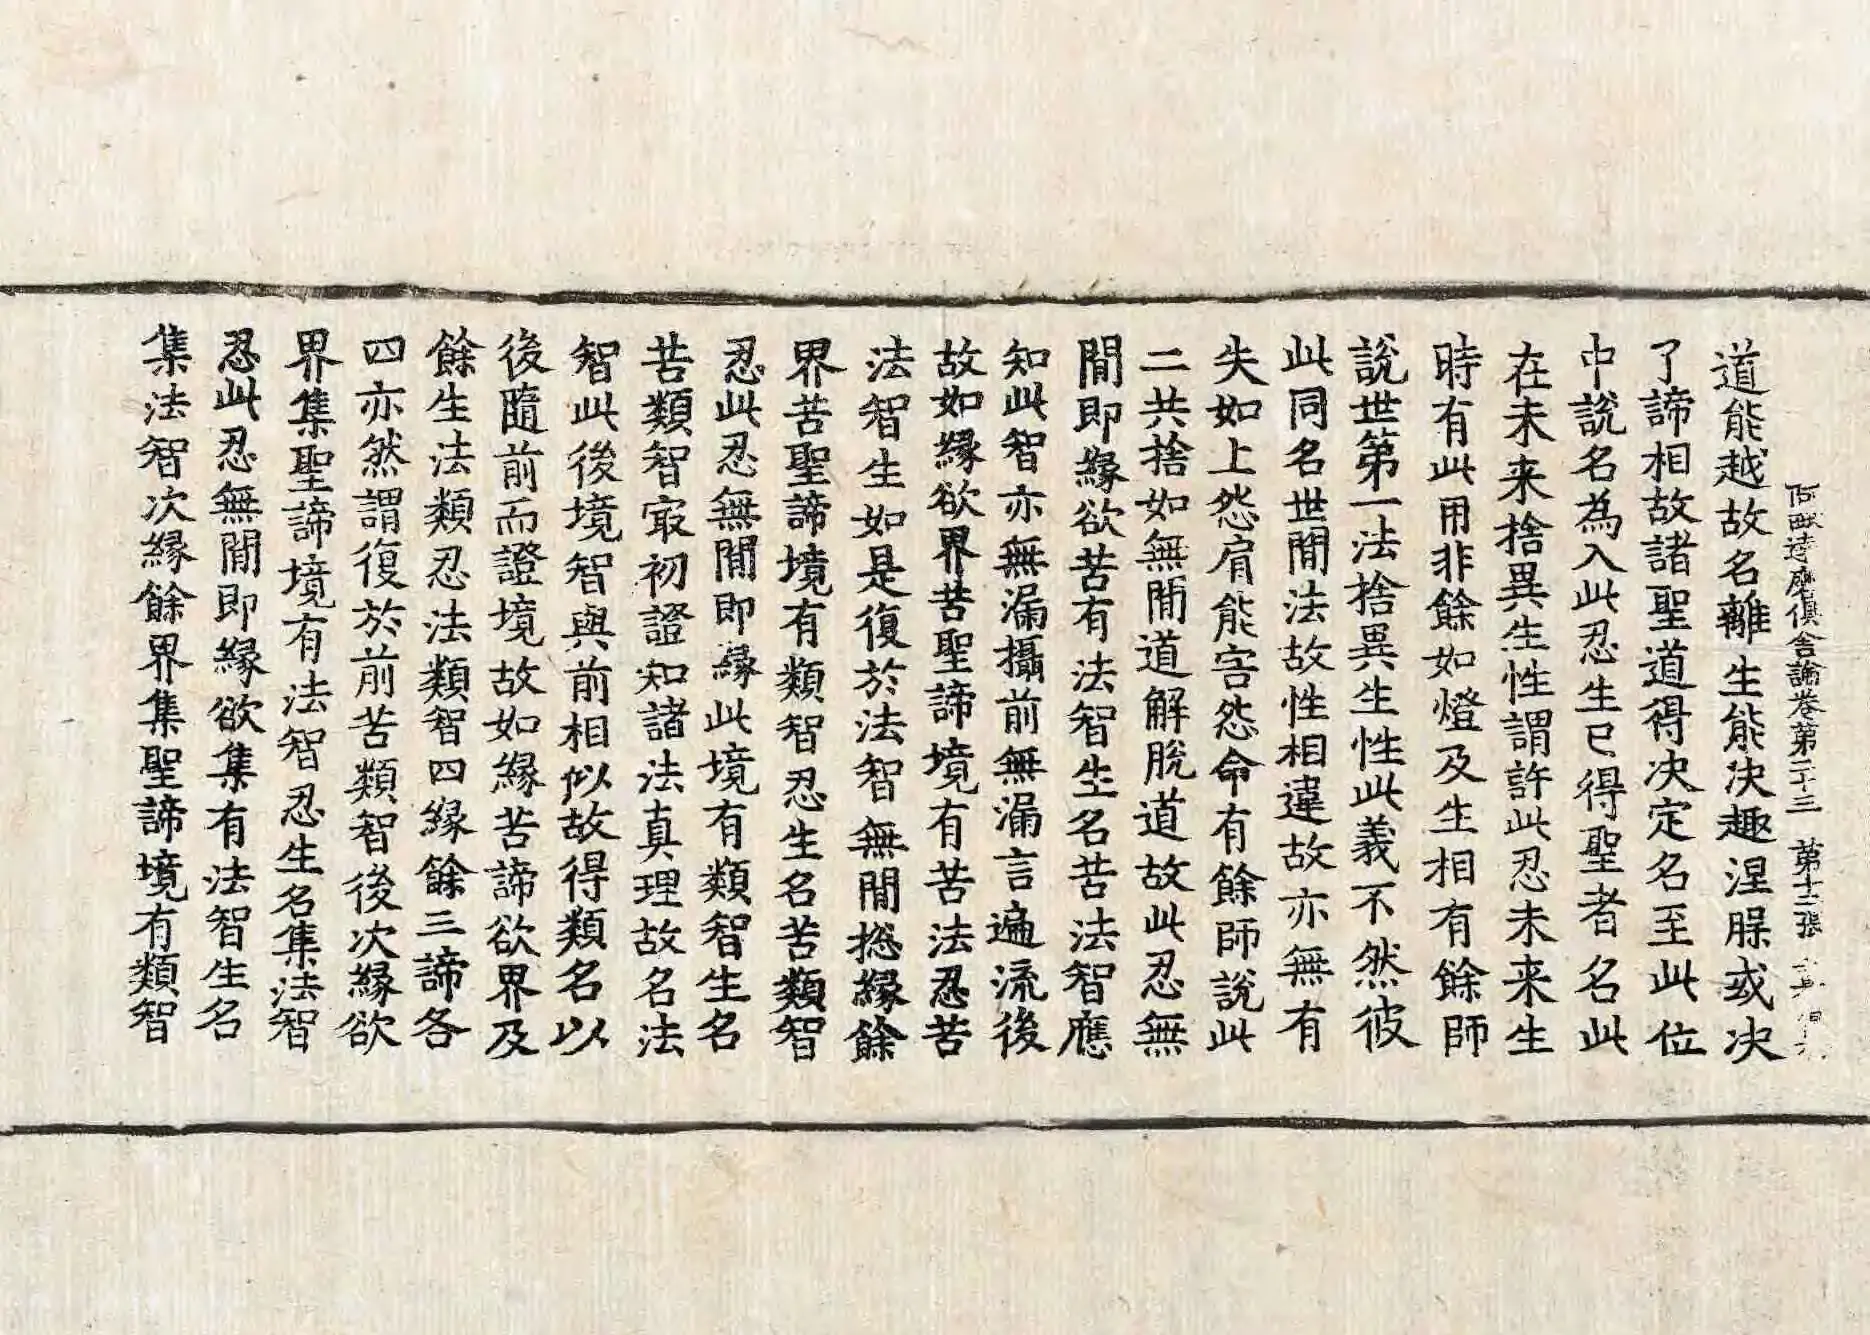 阿毗達磨俱舍論卷第二十三　第十三張
道能越故名離生能決趣涅槃或決
了諦相故諸聖道得決定名至此位
中說名為入此忍生已得聖者名此
在未来捨異生性謂許此忍未来生
時有此用非餘如燈及生相有餘師
說世第一法捨異生性此義不然彼
此同名世間法故性相違故亦無有
失如上怨肩能害怨命有餘師說此
二共捨如無間道解脫道故此忍無
間即緣欲苦有法智生名苦法智應
知此智亦無漏攝前無漏言遍流後
故如緣欲界苦聖諦境有苦法忍苦
法智生如是復於法智無間揔緣餘
界苦聖諦境有類智忍生名苦類智
忍此忍無間即緣此境有類智生名
苦類智㝡初證知諸法真理故名法
智此後境智與前相似故得類名以
後隨前而證境故如緣苦諦欲界及
餘生法類忍法類智四緣餘三諦各
四亦然謂復於前苦類智後次緣欲
界集聖諦境有法智忍生名集法智
忍此忍無間即緣欲集有法智生名
集法智次緣餘界集聖諦境有類智